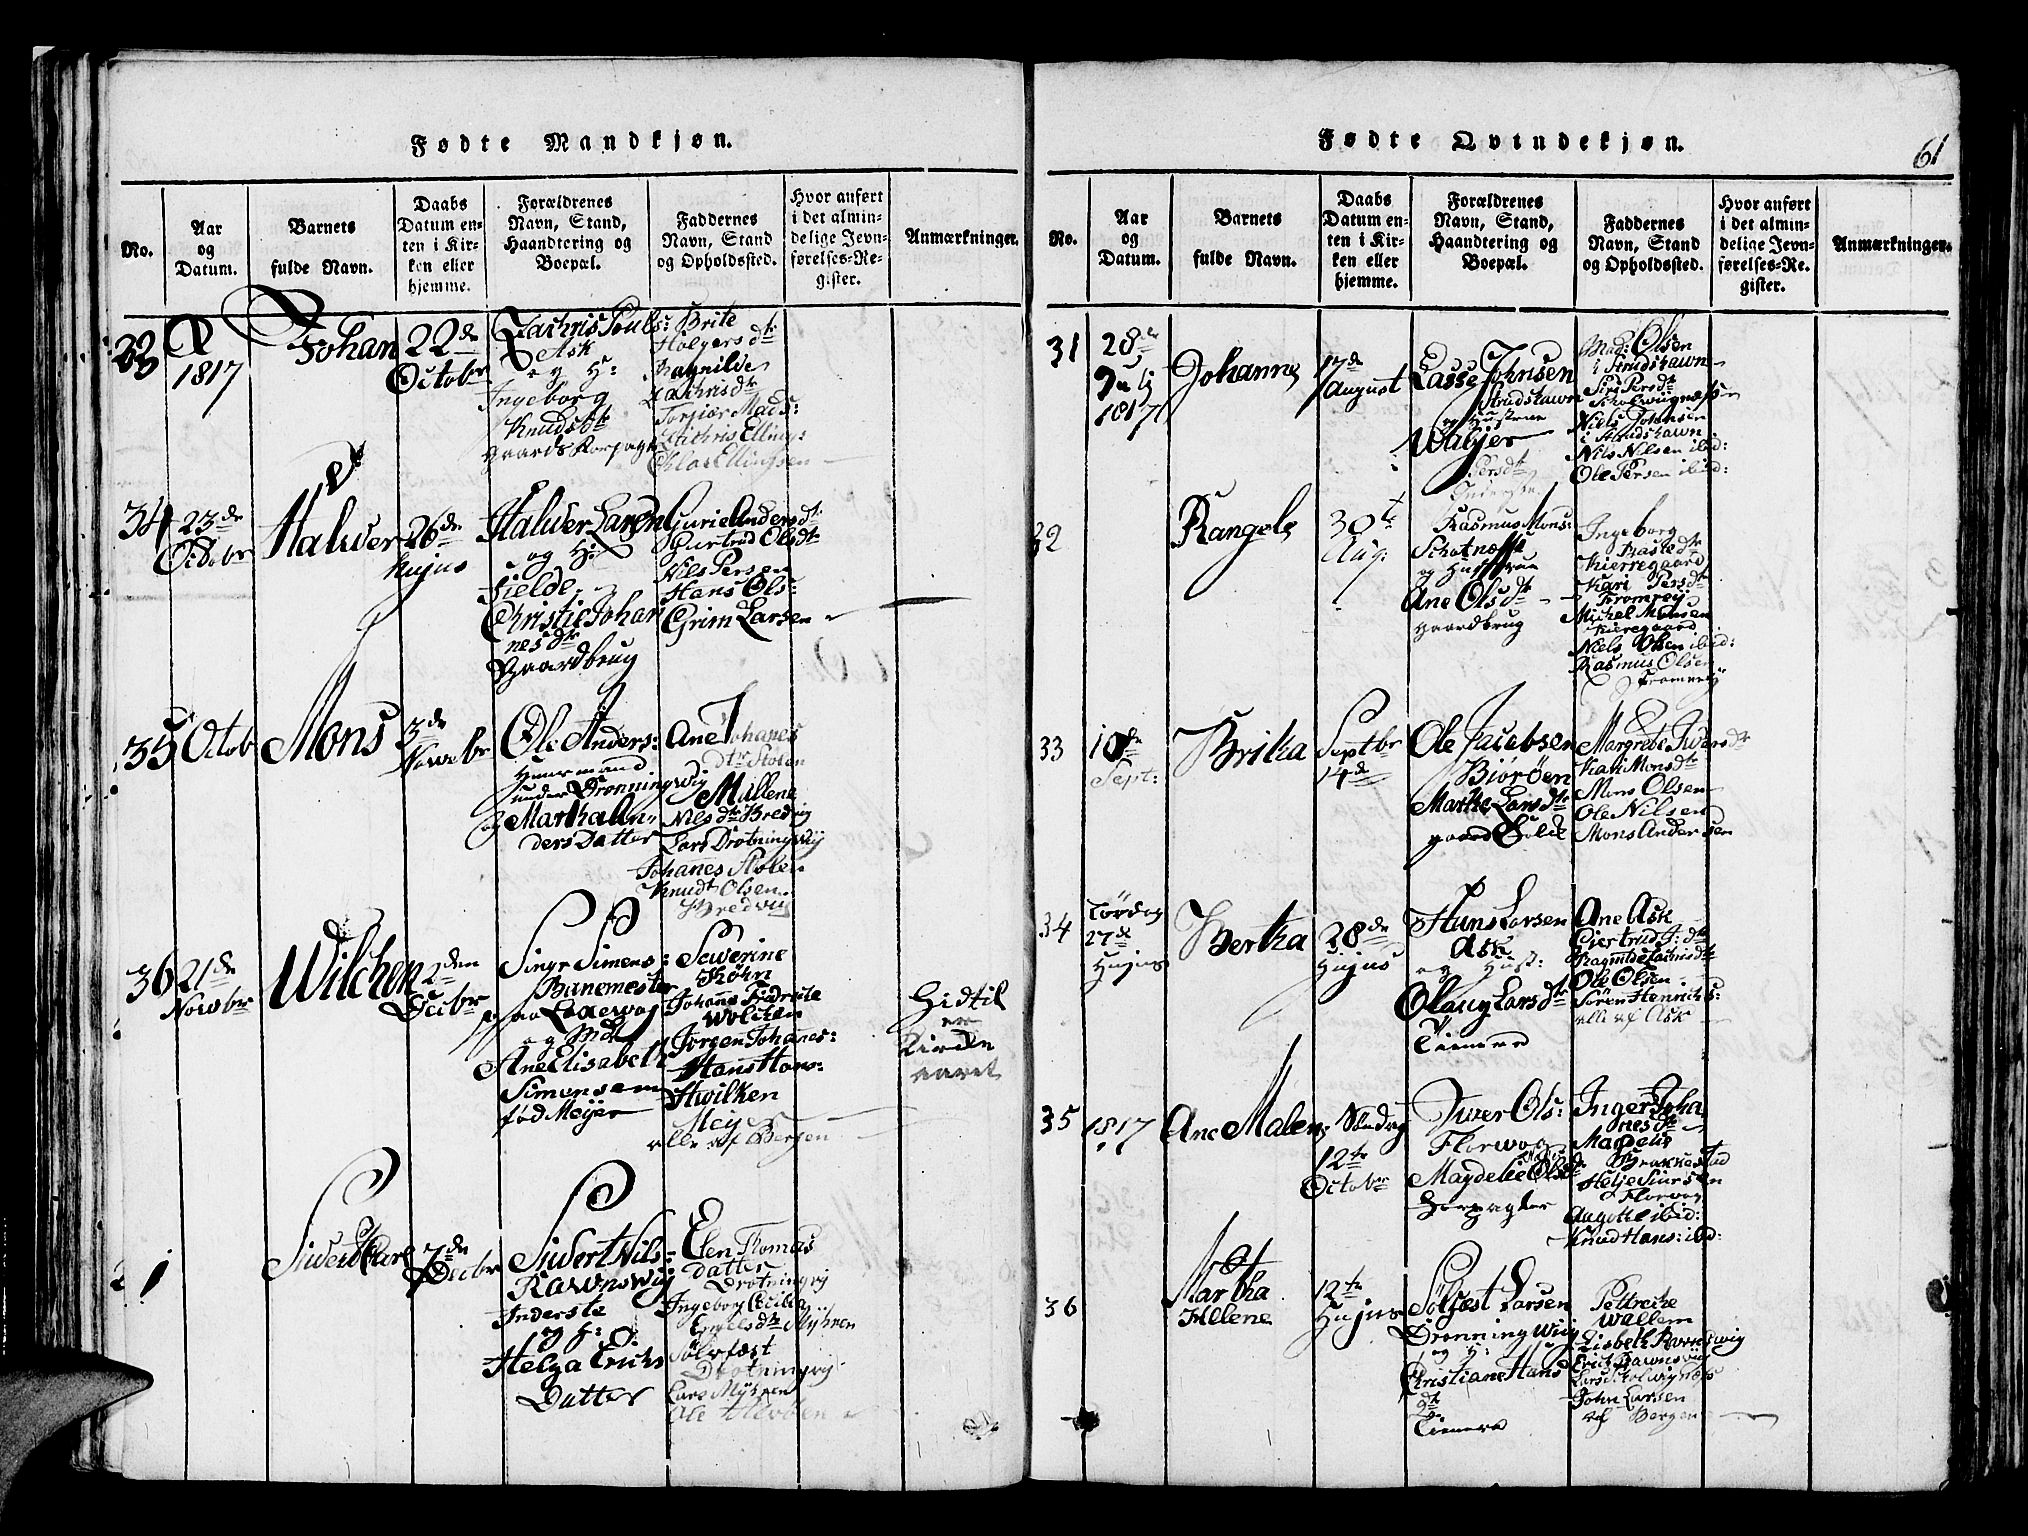 Fødte Mandkjøn.
No.
Aar
og
Datum.
Barnets
fulde Navn.
Daabs
Datum en-
ten i Kir-
ken eller
hjemme.
Forældrenes
Navn, Stand,
Haandtering og
Boepæl.
Faddernes
Navn, Stand
og Opholdssted.
Hvor anført
i det almin-
delige Jevn-
førelses-Re-
gister.
Anmærkninger.
33
1817
Johan
22de
October
Zachris Pouls:
Ask
og H:
Ingeborg
Knudsdtr
Brite
Holgersdtr
Ragnilde
Zachrisdtr
Torgier Mads:
Zachris Ellings:
Ellingsen
34
23de
Octobr
Halver
26de
Hujus
Halver Larsen
og H:
Fielde
Christie Johan
nesdtr
Gaardbrug
Gurie Andersdtr
Giertrud Olsdtr
Nils Persen
Hans Ols:
Grim Larsen
35
Octob
Mons
3de
Novebr
Ole Anders:
Huusmand
under Dronningvig
og Martha An-
ders Datter
Ane Johanes
dtr Stolen
Mallene
Nilsdtr Bredvig
Lars Drotningvig
Johanes Stolen
Knudt Olsen
Bredvig
36
21de
Novbr
Wilchen
2den
Decibr
Simens:
Banemester
paa Laxevog
og Mdm
Ane Elisabeth
Simonsen
fød Meyer
Severine
Køhn
Johane Fredrikke
Woltzen
Jørgen Johanes:
Hans Hans:
Hwilken
Meyer
alle af Bergen
Hidtil
er
Kirke
aaret
1
Sivert Karl
7de
Decibr
Sivert Nils:
Rawnswig
Inderste
og H:
Helga Erichs
Datter
Elen Thomas
datter
Drotningvig
Ingeborg Cecilia
Engelsdtr Myhren
Sølvfæst
Drotningvig
Lars Myhren
Ole
Fødte Qvindekjøn.
61
No.
Aar
og
Datum.
Barnets
fulde Navn.
Daabs
Datum en-
ten i Kir-
ken eller
hjemme.
Forældrenes
Navn, Stand,
Haandtering og
Boepæl.
Faddernes
Navn, Stand
og Opholdssted.
Hvor anført
i det almin-
delige Jevn-
førelses-Re-
gister.
Anmærkninger.
31
28de
July
1817
Johanne
17de
August
Lasse Johnsen
Strudshawn
og Hustrue
Walgier
Persdtr
Inderste
Mad: Olsen
i Strudshawn
Siri Persdtr
Scholwignæss
Niels Johnsen
i Strudshawn
Nils Nilsen ibid:
Ole Persen ibid:
32
Rangele
30te
Aug:
Rasmus Mons:
Schotnæss
og Hustrue
Ane Olsdtr
Gaardbrug
Ingeborg
Kierregaard
Kari Persdtr
Tromrey
Michel Monsen
Kieregaard
Niels Olsen ibid:
Rasmus Olsen
33
10de
Sept:
Brita
Septbr
14de
Ole Jacobsen
Biørøen
Marthe Larsdtr
Margrete Iversdtr
Kari Monsdtr
Mons Olsen
Ole Nilsen
Mons Andersen
34
Lørdag
27de
Hujus
Bertha
28de
Hujus
Hans Larsen
Ask
og Hust:
Olaug Larsdtr
Tienere
Ane Ask
Giertrud J:dtr
Ragnilde Zachrisdtr
Ole Olsen
Søren Henrichs:
alle af Ask
35
1817
Ane Malene
Søndag
12te
October
Iwer Ols:
Florwog
Magdelie Olsdr
Forpagter
Inger Joha
nesdtr
Margelie
Brakkestad
Helje Siursen
Florwog
Aagotte ibid:
Knud Hans: ibid:
36
Martha
Helene
12te
Hujus
Sølfæst Larsen
Dronningwiig
og H:
Christiane Hans
dtr
Tienere
Pettreche
Wallem
Lisbeth Rawnswig
Erich Rawnswig
Lars Scholwignæss
John Larsen
af Bergen